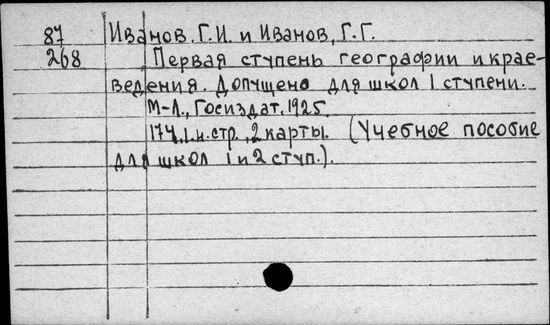 87 Иванов. Г.И. и Иванов, Г.Г.
268 Первая ступень географии и крае-
ведения. Допущено для школ I ступени.
М-Л., Госиздат, 1925.
174,1.н.стр., 2 карты. (Учебное пособие
для школ 1 и 2 ступ.).